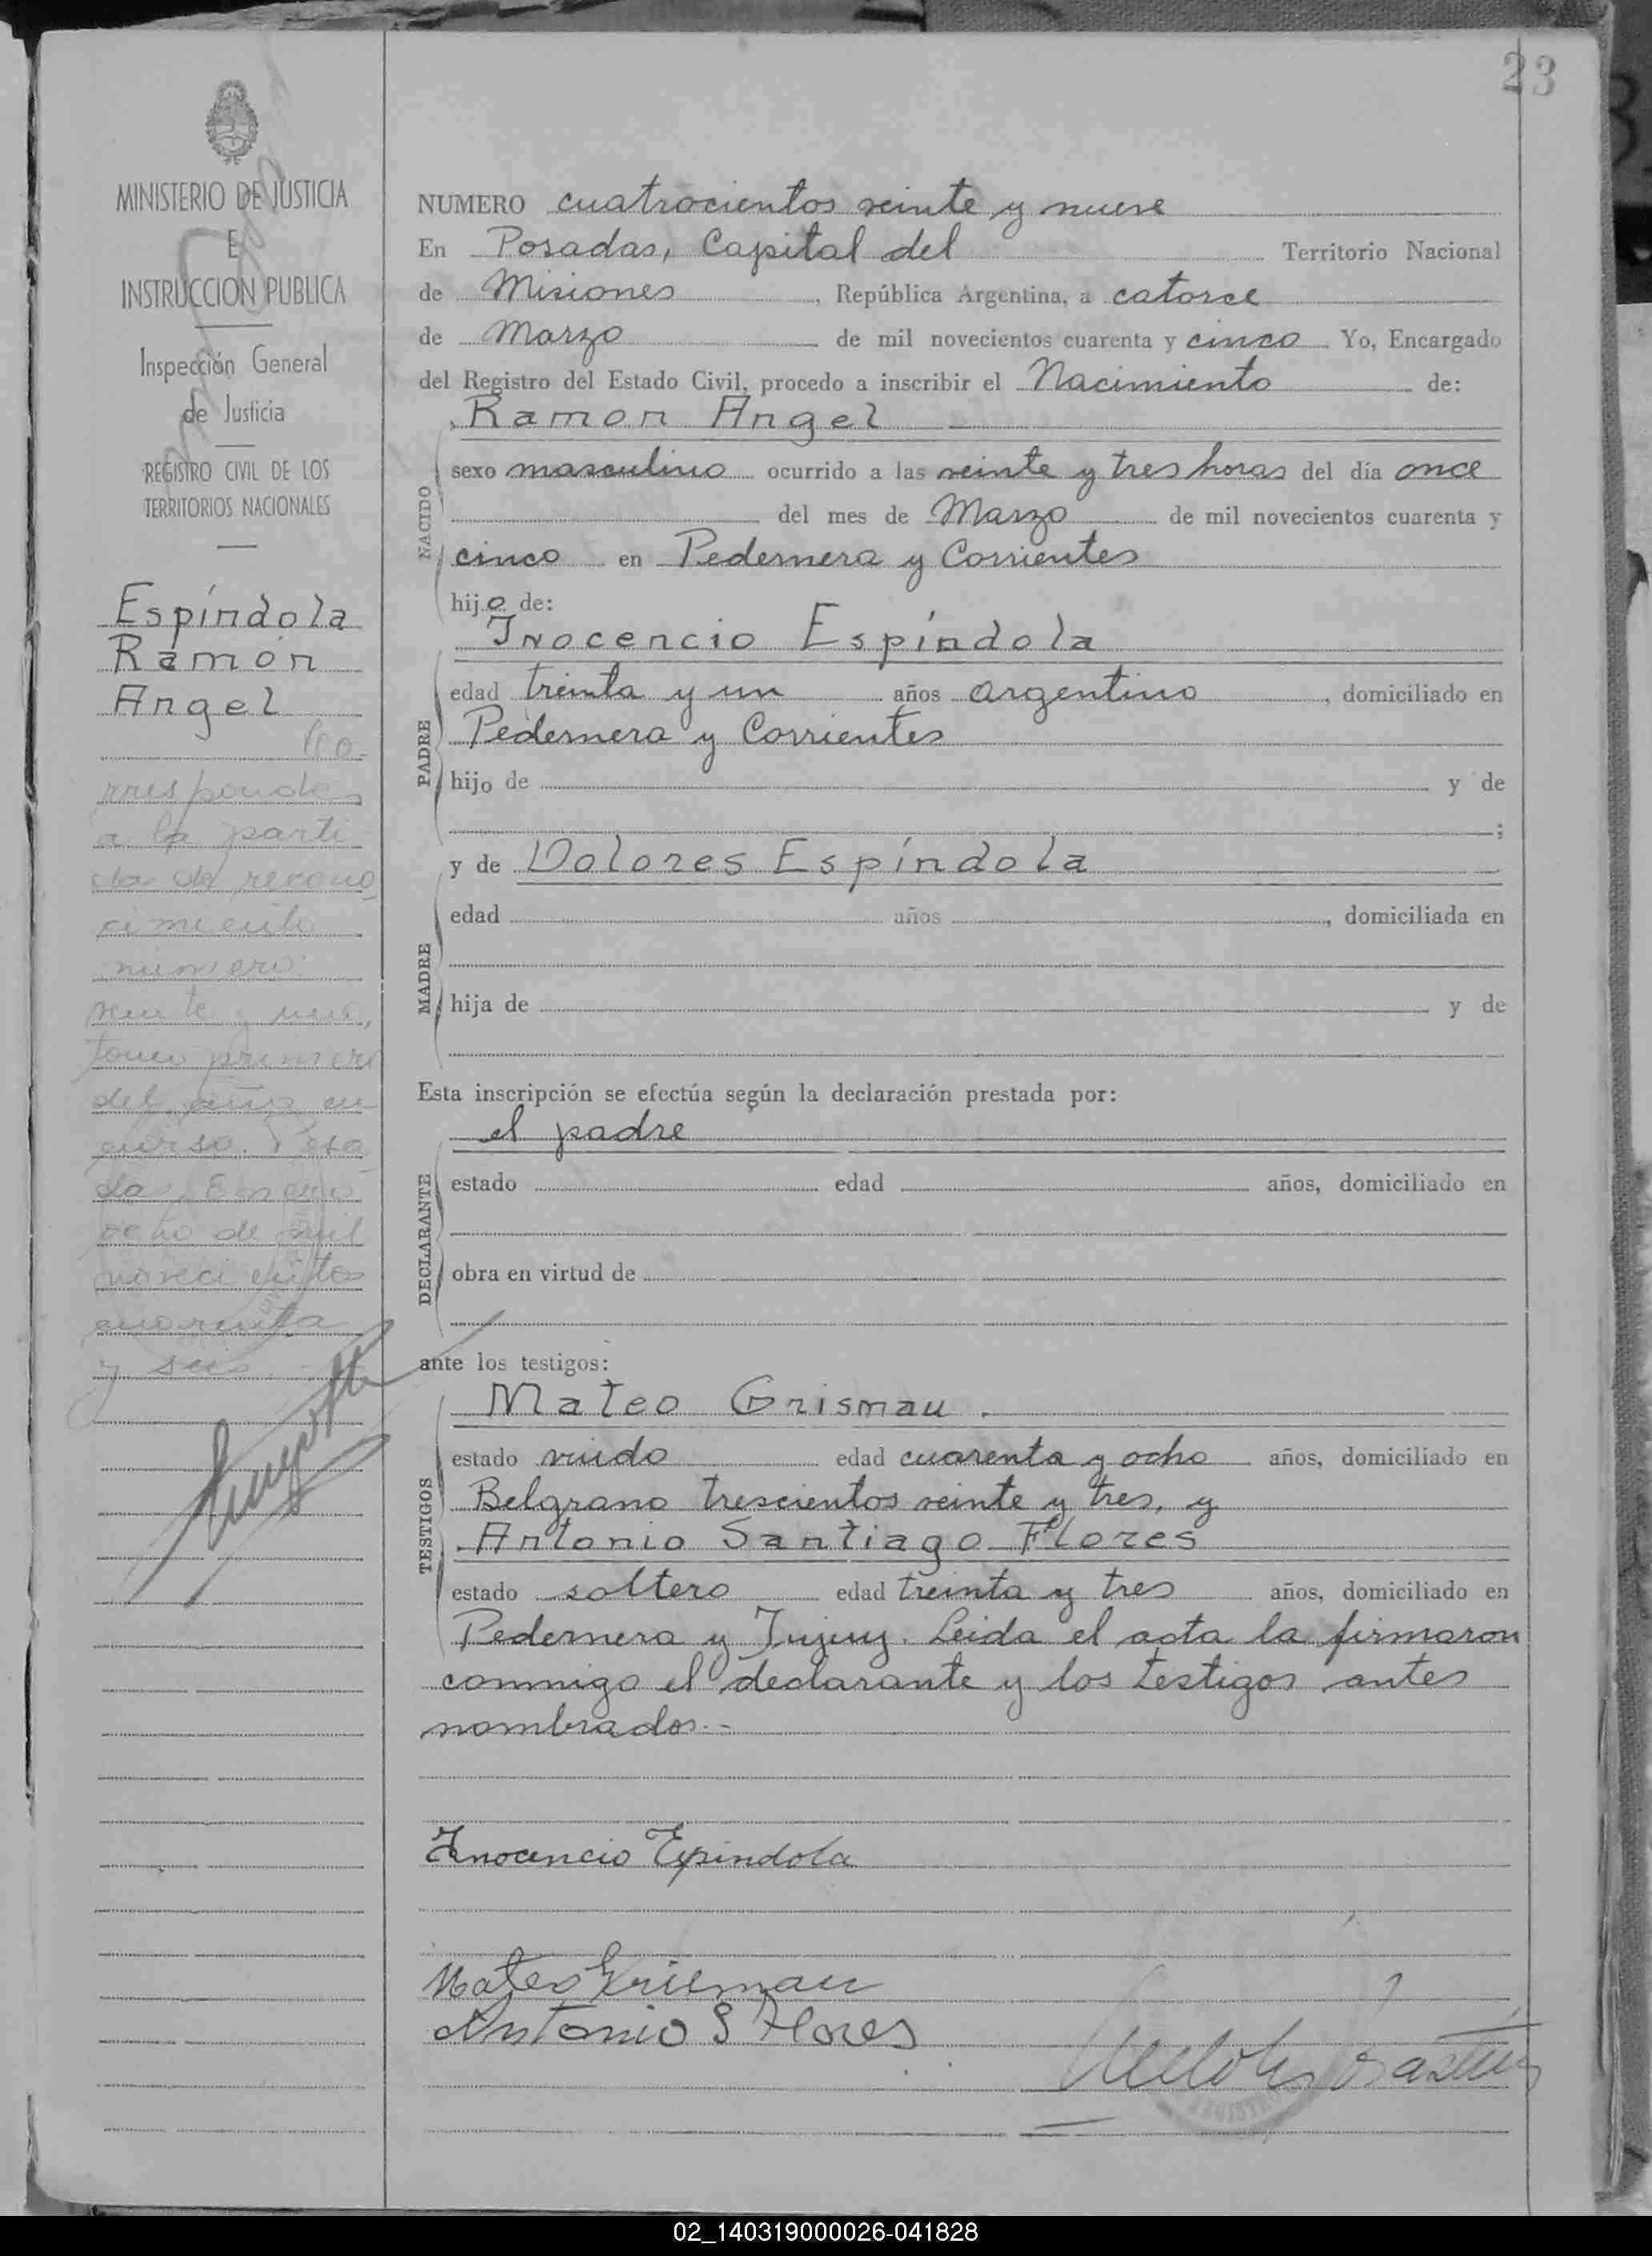 23
MINISTERIO DE JUSTICIA
E
INSTRUCCION PUBLICA
Inspección General
de Justicia
REGISTRO CIVIL DE LOS
TERRITORIOS NACIONALES
Espíndola
Ramón
Angel
Co-
rresponde
a la parti
da de recono
cimiento
numero
veinte y uno,
tomo primero
del año en
curso. Posa
das, Enero
ocho de mil
novecientos
cuarenta
y seis.
NUMERO cuatrocientos veinte y nueve
En Posadas, Capital del Territorio Nacional
de Misiones, República Argentina, a catorce
de Marzo de mil novecientos cuarenta y cinco Yo, Encargado
del Registro del Estado Civil, procedo a inscribir el Nacimiento de:
Ramon Angel
NACIDO
sexo masculino ocurrido a las veinte y tres horas del día once
del mes de Marzo de mil novecientos cuarenta y
cinco en Pedernera y Corrientes
hijo de:
Inocencio Espíndola
PADRE
edad treinta y un años argentino, domiciliado en
Pedernera y Corrientes
hijo de y de
;
y de Dolores Espíndola
MADRE
edad años , domiciliada en
hija de y de
Esta inscripción se efectúa según la declaración prestada por:
el padre
DECLARANTE
estado edad años, domiciliado en
obra en virtud de
ante los testigos:
Mateo Grismau.
TESTIGOS
estado viudo edad cuarenta y ocho años, domiciliado en
Belgrano trescientos veinte y tres, y
Antonio Santiago Flores
estado soltero edad treinta y tres años, domiciliado en
Pedernera y Jujuy. Leida el acta la firmaron
conmigo el declarante y los testigos antes
nombrados.-
Inocencio Espindola
Mateo Grismau
Antonio S Flores
REGISTRO
02_140319000026-041828